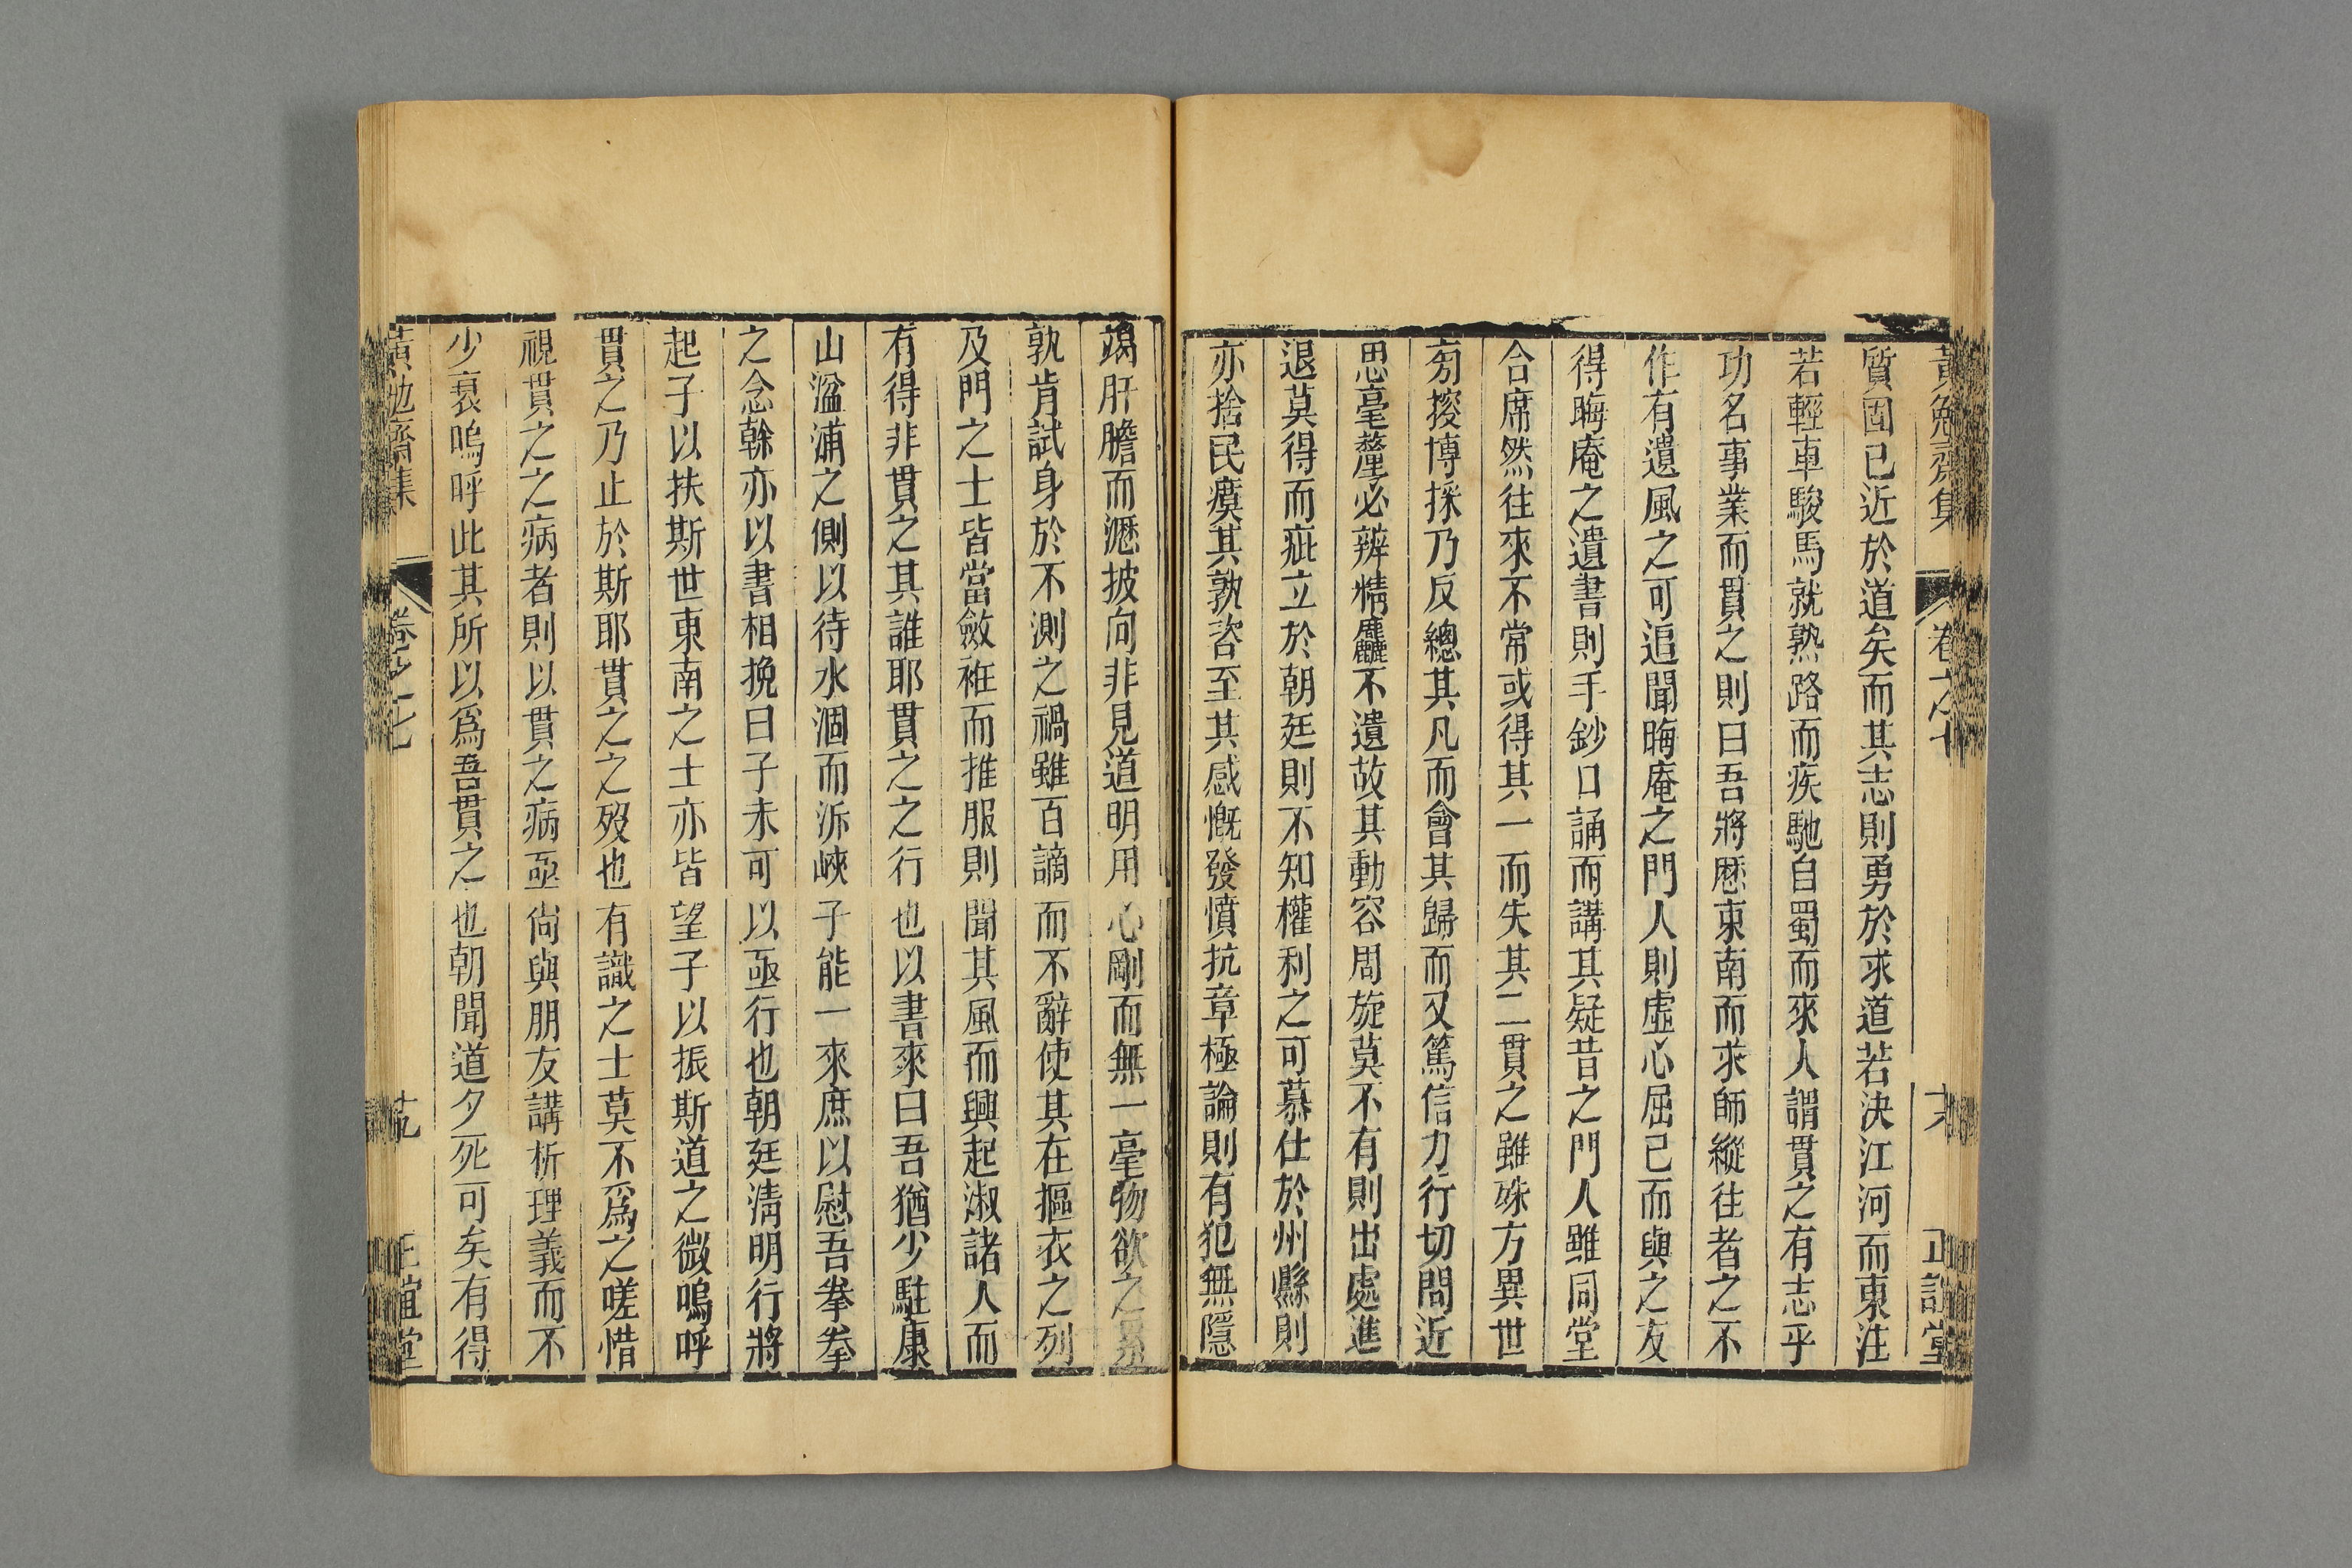 黃勉齋集 卷之七 十八 正誼堂
質固已近於道矣而其志則勇於求道若決江河而東注
若輕車駿馬就熟路而疾馳自蜀而來人謂貫之有志乎
功名事業而貫之則曰吾將厯東南而求師縱往者之不
作有遺風之可追聞晦庵之門人則虛心屈己而與之友
得晦庵之遺書則手鈔口誦而講其疑昔之門人雖同堂
合席然往來不常或得其一而失其二貫之雖殊方異世
旁搜博採乃反總其凡而會其歸而又篤信力行切問近
思毫釐必辨精麤不遺故其動容周旋莫不有則出處進
退莫得而疵立於朝廷則不知權利之可慕仕於州縣則
亦捨民瘼其孰咨至其感慨發憤抗章極論則有犯無隱
竭肝膽而瀝披向非見道明用心剛而無一毫物欲之累
孰肯試身於不測之禍雖百謫而不辭使其在摳衣之列
及門之士皆當斂袵而推服則聞其風而興起淑諸人而
有得非貫之其誰耶貫之之行也以書來曰吾猶少駐康
山湓浦之側以待水涸而泝峽子能一來庶以慰吾拳拳
之念榦亦以書相挽曰子未可以亟行也朝廷淸明行將
起子以扶斯世東南之士亦皆望子以振斯道之微嗚呼
貫之乃止於斯耶貫之之歿也有識之士莫不爲之嗟惜
視貫之之病者則以貫之病亟尙與朋友講析理義而不
少衰嗚呼此其所以爲吾貫之也朝聞道夕死可矣有得
黃勉齋集 卷之七 十九 正誼堂